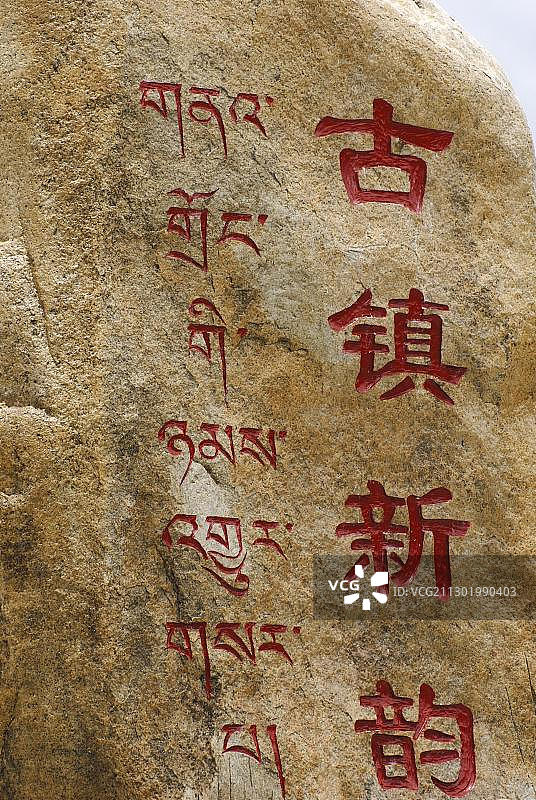 གནའ་
གྲོང་
གི་
ཉམས་
འགྱུར་
གསར་
པ།
古镇新韵
VCG
ID:VCG211301990403